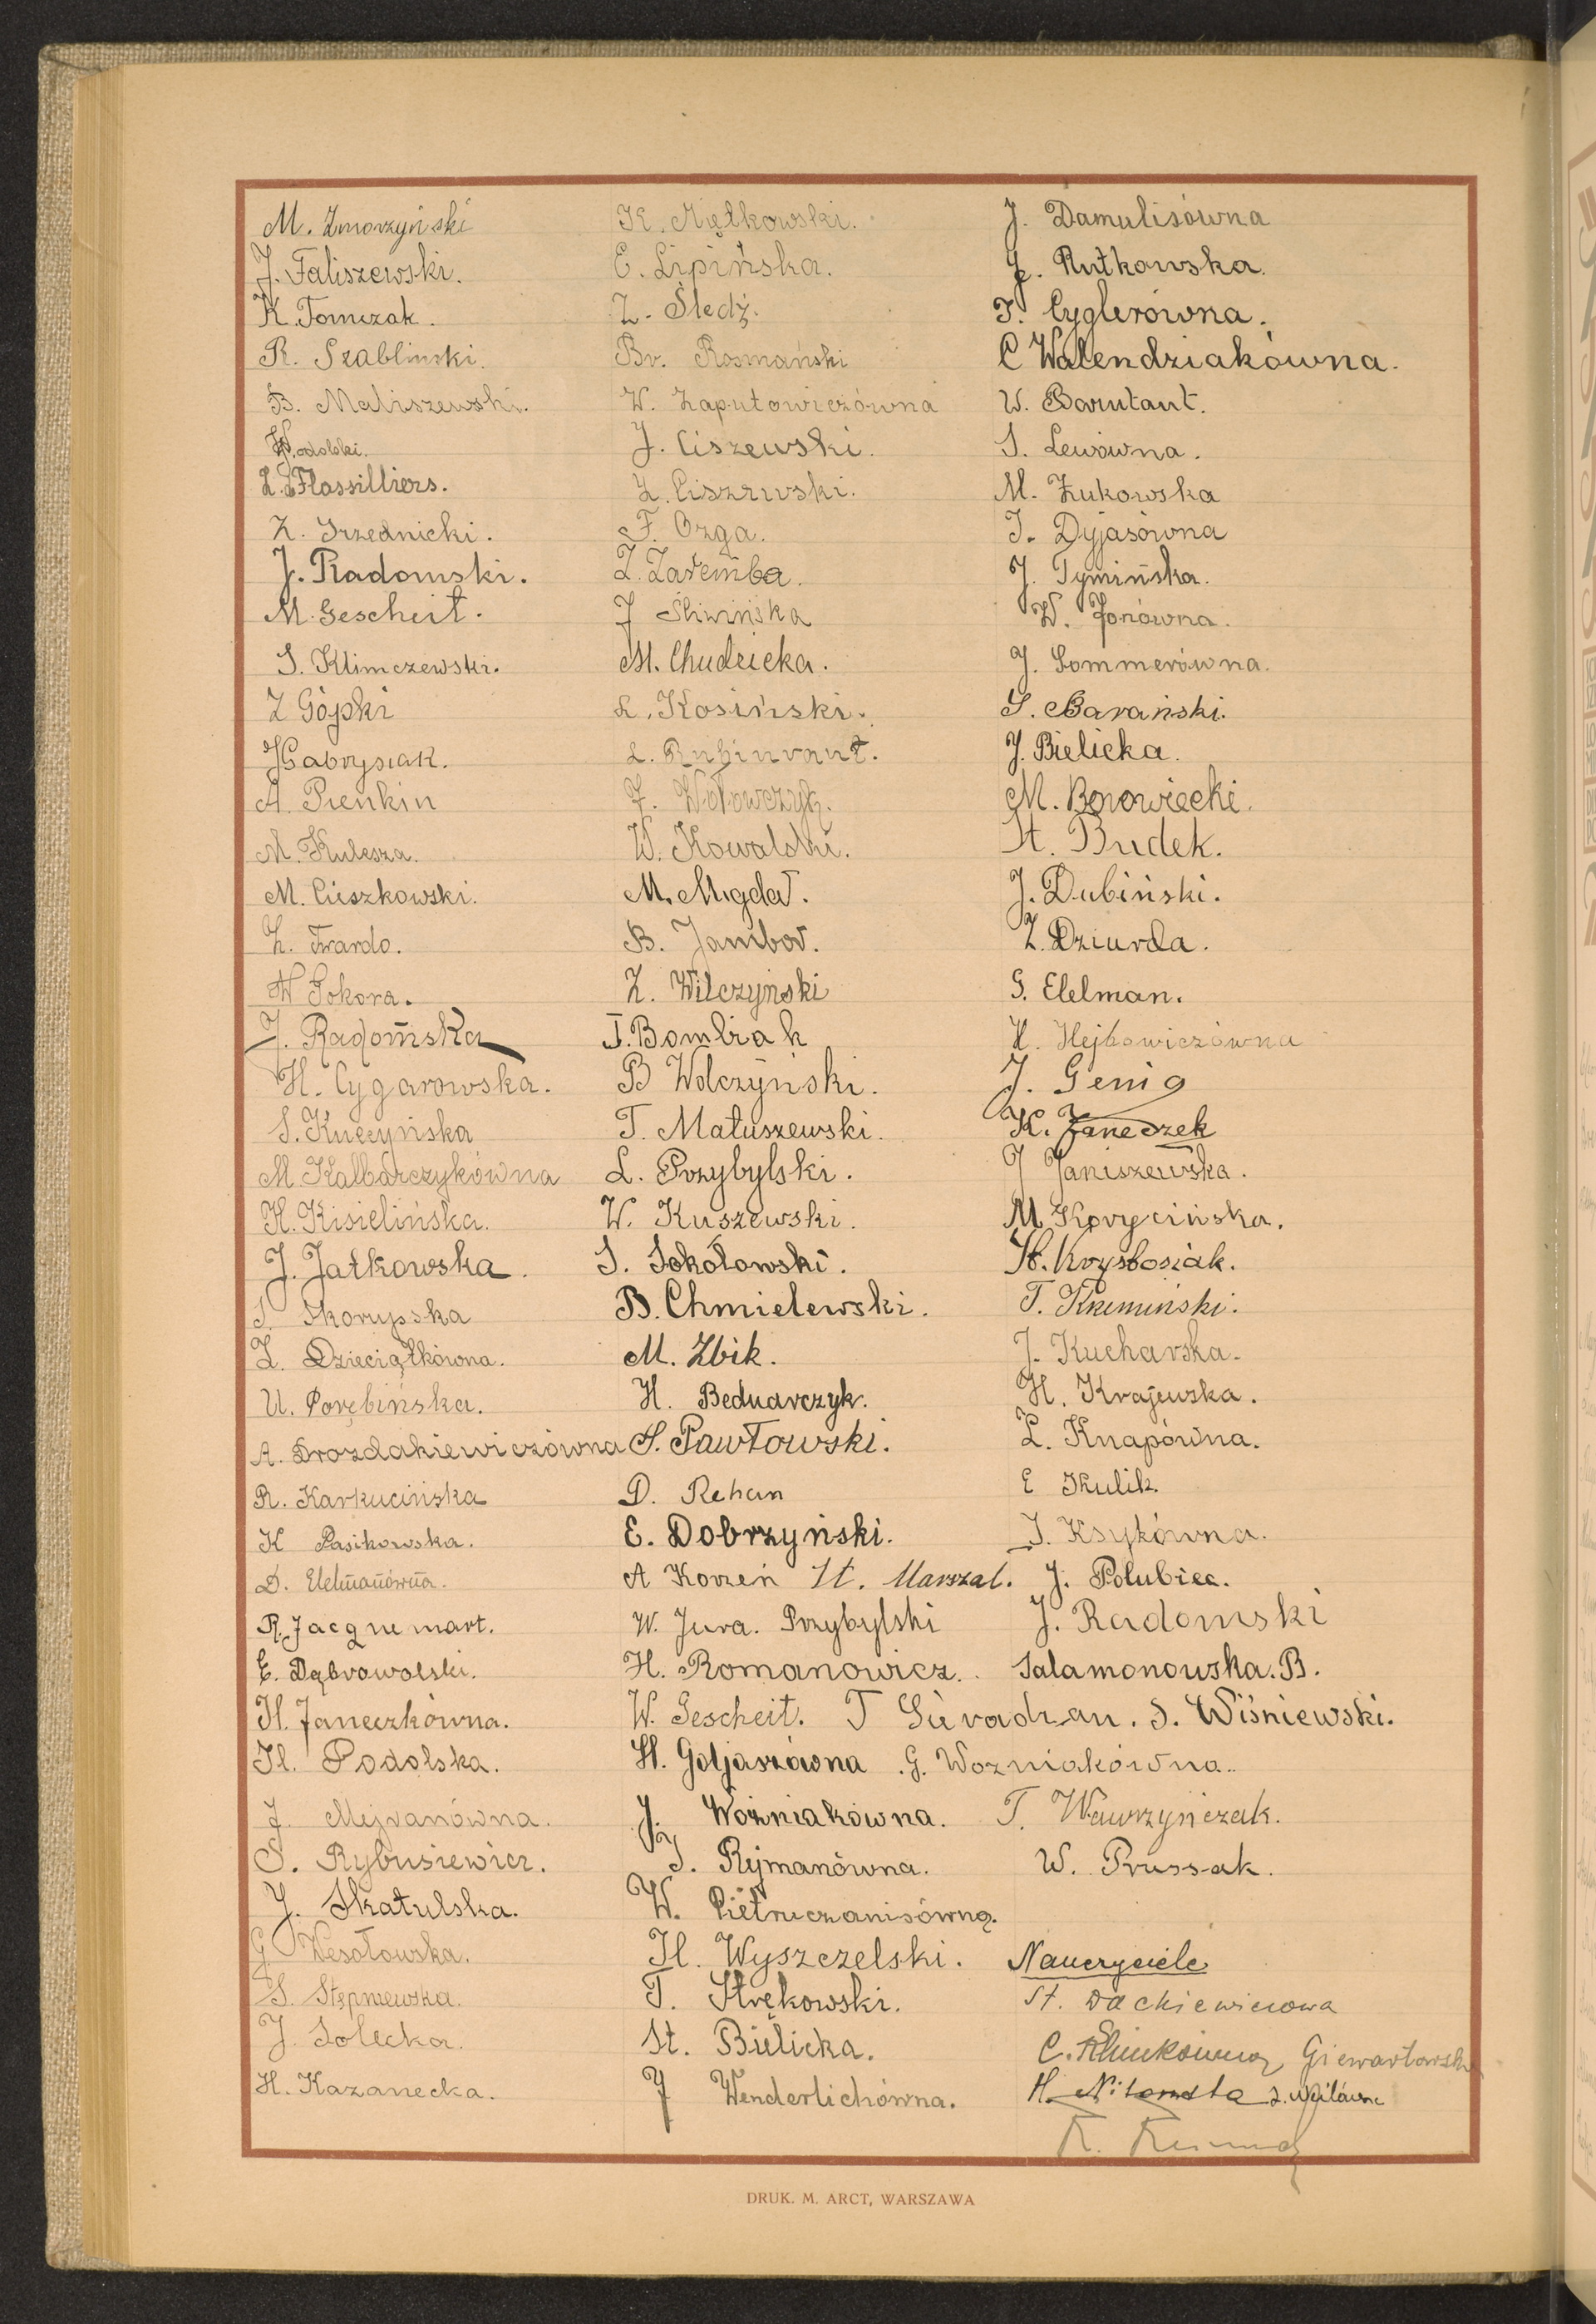 M. Zmorzyński
J. Faliszewski.
K. Tomczak.
R. Szablinski.
B. Maliszewski.
W. Podolski.
L. Flassilliers.
Z. Grzednicki.
J. Radomski.
M. Gescheit.
S. Klimczewski.
Z Gójski
J Gabrysiak.
A. Pienkin
M. Kulesza.
M. Cieszkowski.
Z. Twardo.
W Sokora.
J. Radomska
H. Cygarowska.
S. Kuczyńska
M. Kalbarczykówna
H. Kisielińska.
J. Jatkowska.
S. Skorupska
Z. Dzieciątkówna.
U. Porębińska.
A. Drozdakiewiczówna
R. Karkucińska
K Pasikowska.
D. Elelmanówna.
R. Jacquemart.
E. Dąbrowolski.
H. Janeczkówna.
H. Podolska.
J. Mejranówna.
S. Rybusiewicz.
J. Skatulska.
G Wesołowska.
S. Stępniewska.
J. Solecka.
H. Kazanecka.
K. Miętkowski.
E. Lipińska.
Z. Śledź.
Br. Rosmański
W. Zaputowiczówna
J. Ciszewski.
Z. Ciszewski.
F. Ozga.
Z. Zaremba.
J Śliwińska
M. Chudzicka.
L. Kosiński.
L. Rubinraut.
J. Wołowczyk.
W. Kowalski.
M. Migdał.
B. Jambor.
Z. Wilczyński
J. Bombiak
B Wolczyński.
T. Matuszewski.
L. Przybylski.
W. Kuszewski.
S. Sokołowski.
B. Chmielewski.
M. Zbik.
H. Bednarczyk.
S. Pawłowski.
D. Rehan
E. Dobrzyński.
A Korzeń St. Marszal.
W. Jura. Przybylski
H. Romanowicz.
W. Gescheit. T S. Wiśniewski.
H. Goljaszówna G. Wozniakówna.
J. Woźniakówna.
J. Rejmanówna.
W. Pietruczanisówna.
H. Wyszczelski.
T. Strękowski.
St. Bielicka.
J Wenderlichówna.
J. Damulisówna
J. Rutkowska.
I. Cyglerówna.
C Walendziakówna.
W. Barutant.
S. Lewówna.
M. Żukowska
I. Dyjasówna
J. Tymińska.
W. Jonówna.
J. Sommerówna.
S. Barański.
J. Bielicka.
M. Borowiecki.
St. Budek.
J. Dubiński.
Z. Dziurda.
G. Elelman.
H. Hejbowiczówna
J. Genig
K. Janeczek
J Janiszewska.
M Korycińska.
St. Krysbosiak.
T. Krzemiński.
J. Kucharska.
H. Krajewska.
L. Knapówna.
E Kulik.
I. Ksykówna.
J. Polubiec.
J. Radomski
Salamonowska. B.
T. Wawrzyńczak.
W. Prussak.
Nauczyciele
St. Dackiewiczowa
C. Giewartowska